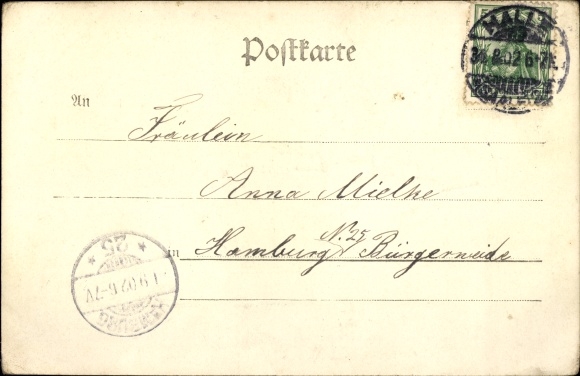 Postkarte
HALLE
31.8.02.6-7N.
An
Fräulein
Anna Mielke
in Hamburg N. 25 Bürgerweide
HAMBURG
1.9.02.6-7V
* 25 *